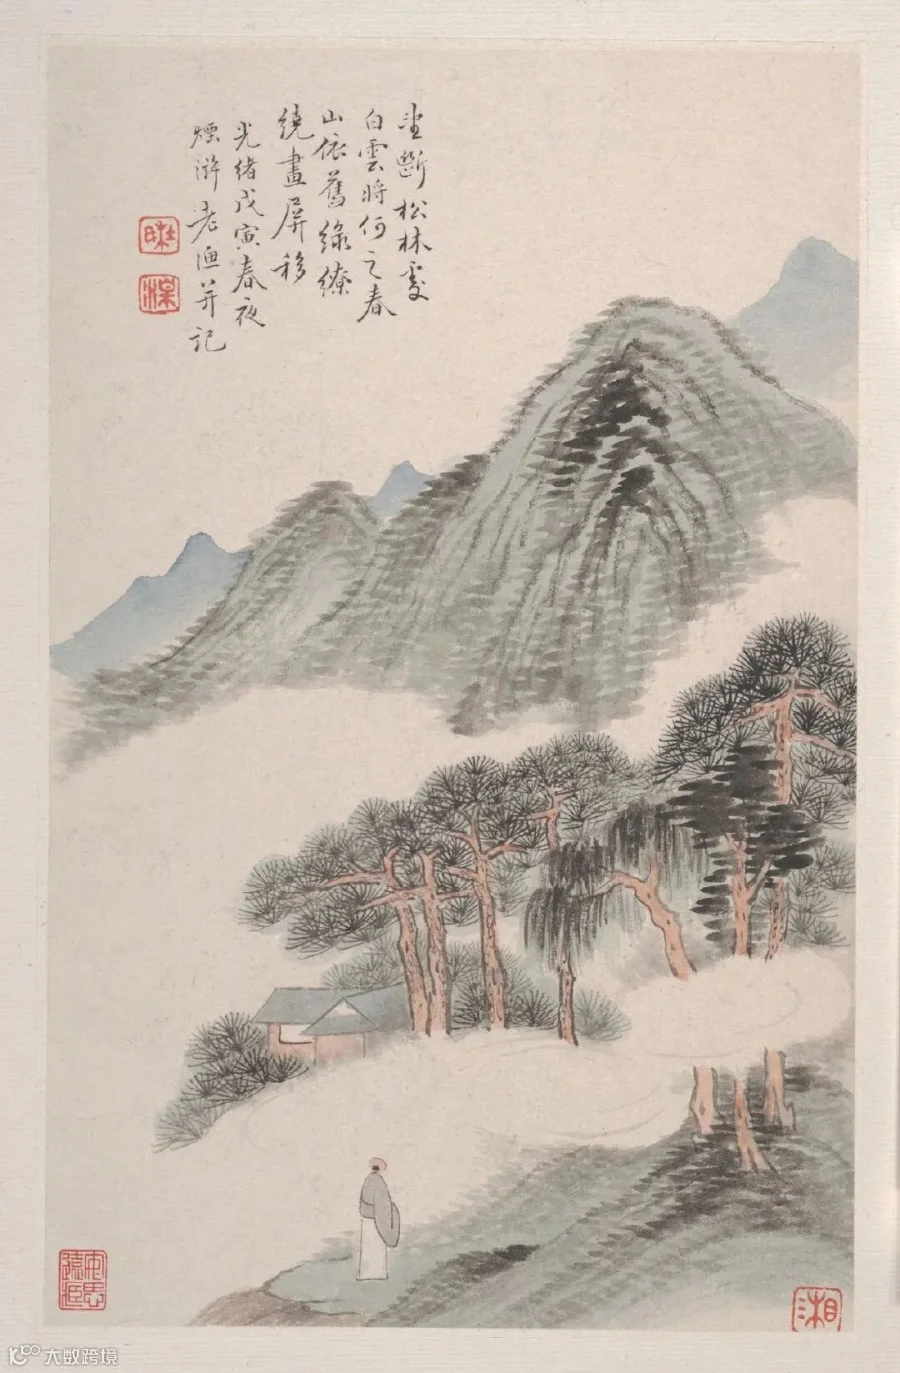 坐斷松林處
白雲將何之春
山依舊綠繚
繞畫屏移
光緒戊寅春夜
煙滸老漁并記
安思遠藏
湘
大数跨境